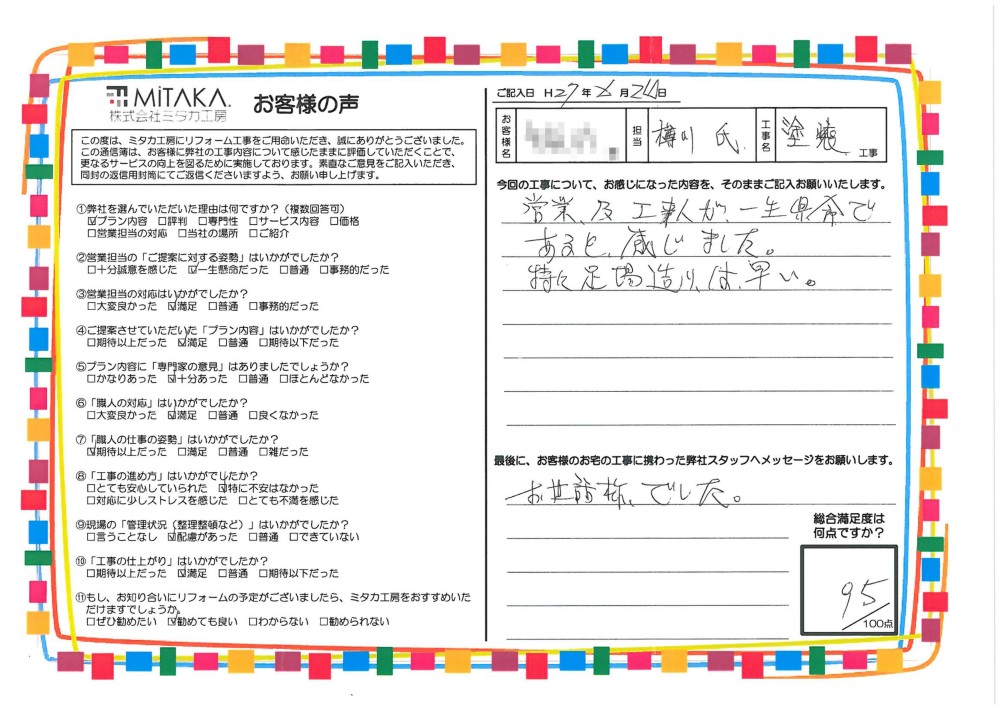 MiTAKA.
株式会社ミタカ工房
お客様の声
この度は、ミタカ工房にリフォーム工事をご用命いただき、誠にありがとうございました。
この通信簿は、お客様に弊社の工事内容について感じたままに評価していただくことで、
更なるサービスの向上を図るために実施しております。素直なご意見をご記入いただき、
同封の返信用封筒にてご返信くださいますよう、お願い申し上げます。
①弊社を選んでいただいた理由は何ですか?（複数回答可）
☑プラン内容 □評判 □専門性 □サービス内容 □価格
□営業担当の対応 □当社の場所 □ご紹介
②営業担当の「ご提案に対する姿勢」はいかがでしたか?
□十分誠意を感じた ☑一生懸命だった □普通 □事務的だった
③営業担当の対応はいかがでしたか?
□大変良かった ☑満足 □普通 □事務的だった
④ご提案させていただいた「プラン内容」はいかがでしたか?
□期待以上だった ☑満足 □普通 □期待以下だった
⑤プラン内容に「専門家の意見」はありましたでしょうか?
□かなりあった ☑十分あった □普通 □ほとんどなかった
⑥「職人の対応」はいかがでしたか?
□大変良かった ☑満足 □普通 □良くなかった
⑦「職人の仕事の姿勢」はいかがでしたか?
☑期待以上だった □満足 □普通 □雑だった
⑧「工事の進め方」はいかがでしたか?
□とても安心していられた ☑特に不安はなかった
□対応に少しストレスを感じた □とても不満を感じた
⑨現場の「管理状況（整理整頓など）」はいかがでしたか?
□言うことなし ☑配慮があった □普通 □できていない
⑩「工事の仕上がり」はいかがでしたか?
□期待以上だった ☑満足 □普通 □期待以下だった
⑪もし、お知り合いにリフォームの予定がございましたら、ミタカ工房をおすすめいた
だけますでしょうか。
□ぜひ勧めたい ☑勧めても良い □わからない □勧められない
ご記入日 H27年 月24日
お客様名
担当 樽川 氏.
工事名 塗装 工事
今回の工事について、お感じになった内容を、そのままご記入お願いいたします。
営業、及工事人が一生県命で
あると、感じました。
特に足場造りは、早い。
最後に、お客様のお宅の工事に携わった弊社スタッフへメッセージをお願いします。
お世話様、でした。
総合満足度は
何点ですか?
95
/100点